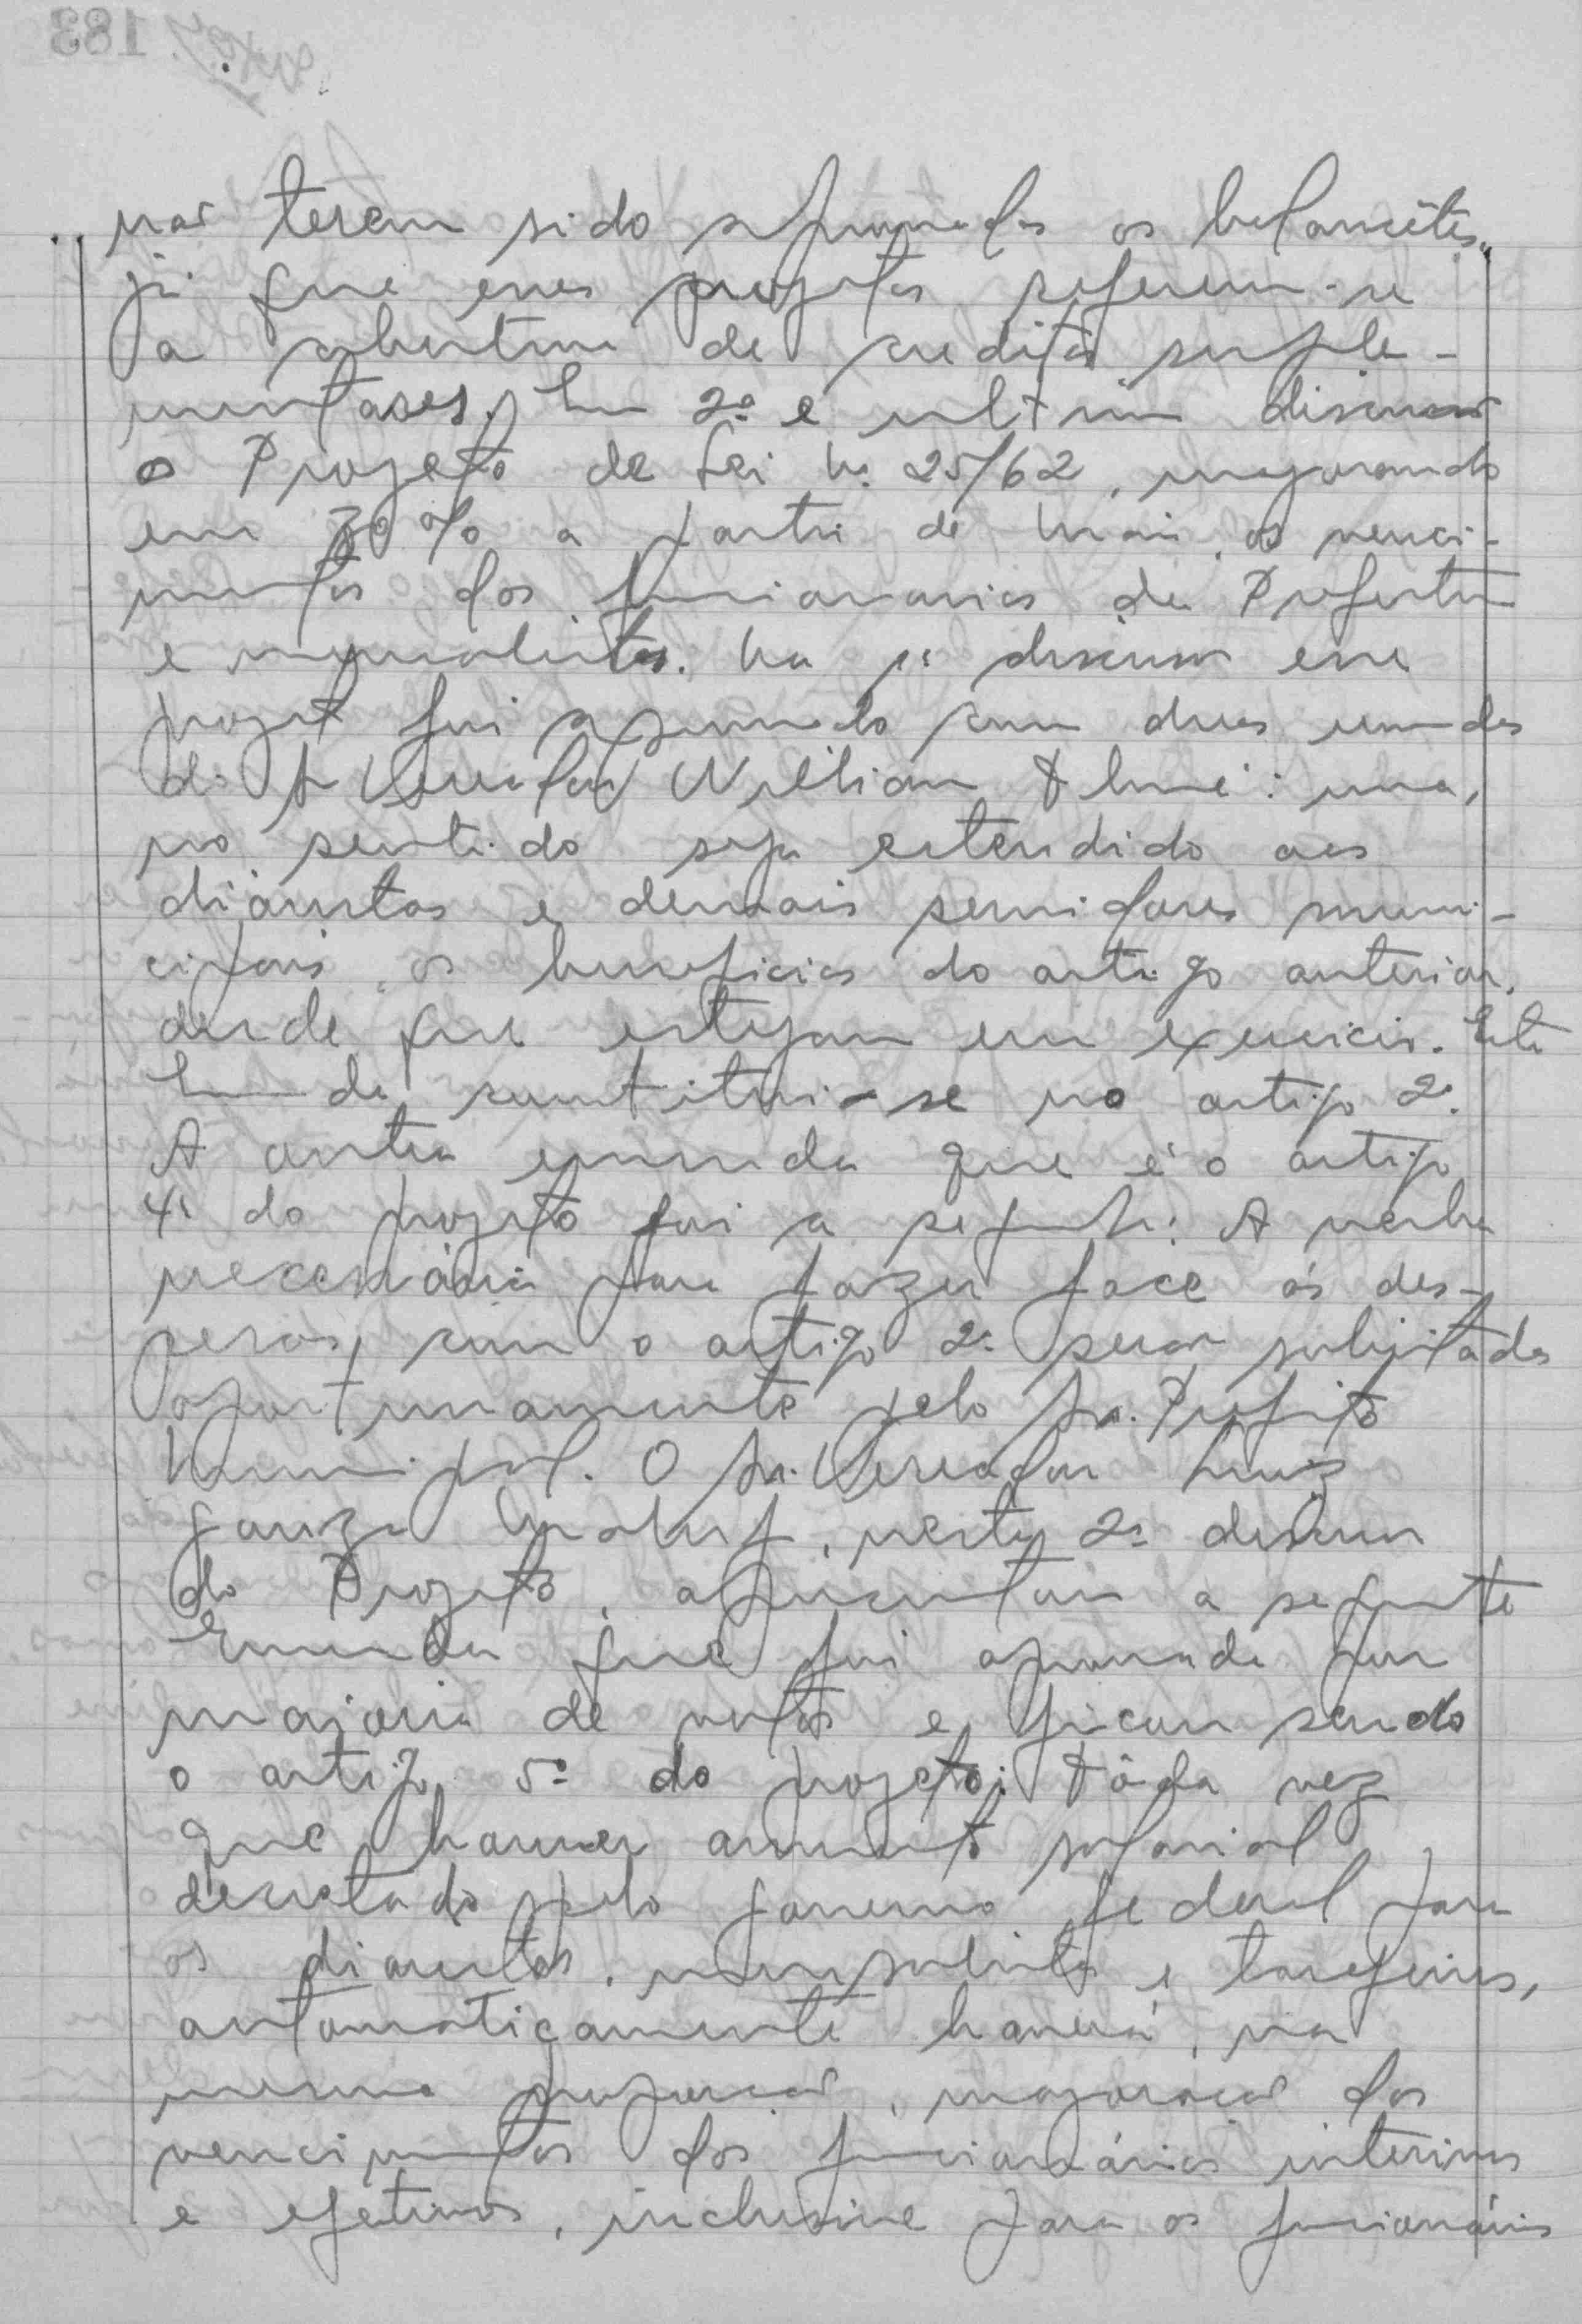 não terem sido aprovados os balancêtes,
já que esses projetos referem-se
a abertura de creditos suple-
mentares. Em 2ª e ultima discussão
o Projeto de Lei nº 25/62, majorando
em 30% a partir de maio, os venci-
mentos dos funcionarios da Prefeitura
e mensalistas. Na 1ª discussão esse
projeto foi aprovado com duas emendas
do Sr Vereador Wilian Thomé: uma,
no sentido seja extendido aos
diaristas e demais servidores muni-
cipais, os beneficios do artigo anterior,
desde que estejam em exercicio. Esta
Emenda constitui-se no artigo 2º.
A outra emenda que é o artigo
4º do projeto foi a seguinte: A verba
necessária para fazer face ás des-
pesas, com o artigo 2º será solicitada
oportunamente pelo Sr. Prefeito
Municipal. O Sr. Vereador Luiz
Gonzaga, nesta 2ª discussão
do Projeto, apresentou a seguinte
Emenda que foi aprovada por
maioria de votos e ficou sendo
o artigo 5º do projeto: Tôda vez
que houver aumento salarial
decretado pelo governo federal para
os diaristas, mensalistas e tarefeiros,
automaticamente haverá, na
mesma proporção, majoração dos
vencimentos dos funcionários interinos
e efetivos, inclusive para os funcionários